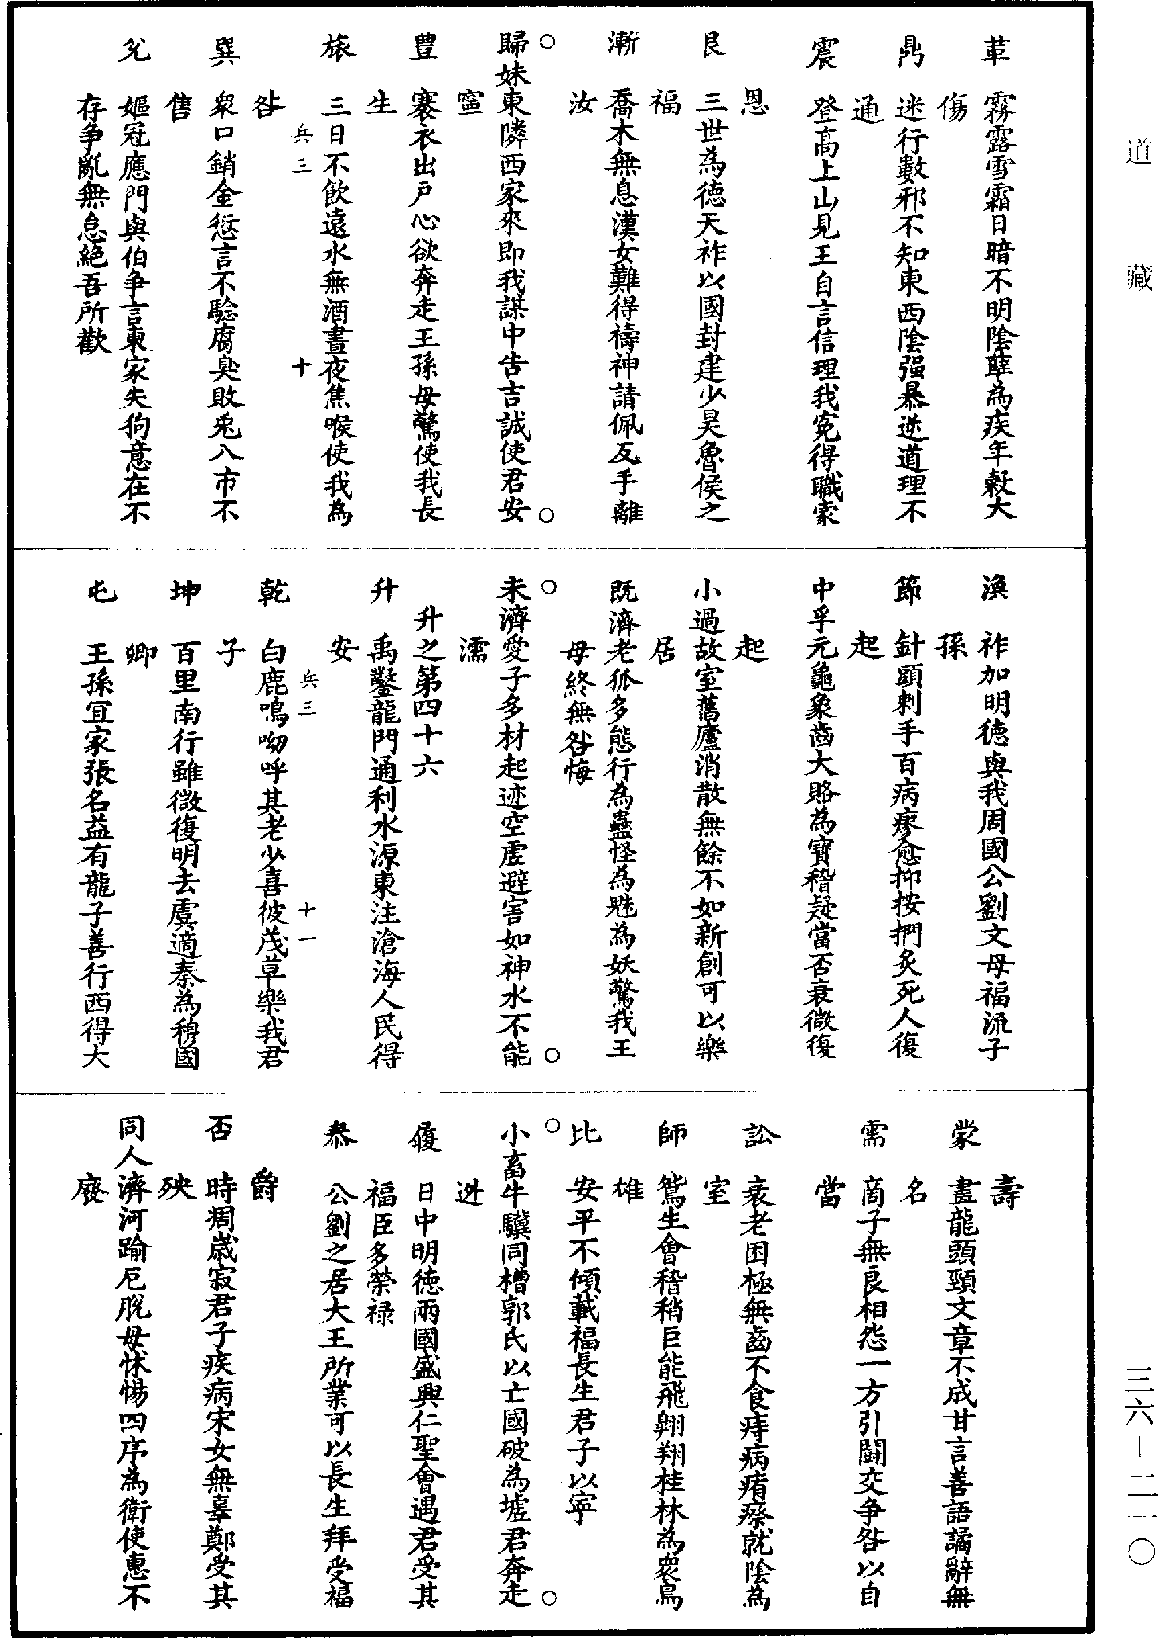 革　霧露雪霜日暗不明陰孽為疾年穀大
傷
鼎　迷行數邪不知東西陰强暴逆道理不
通
震　登高上山見王自言信理我冤得職蒙
恩
艮　三世為德天祚以國封建少昊魯侯之
福
漸　喬木無息漢女難得禱神請佩反手離
汝
歸妹東隣西家來即我謀中告吉誠使君安
寧
豊　褰衣出戶心欲奔走王孫母驚使我長
生
旅　三日不飲遠水無酒晝夜焦喉使我為
咎
兵三　十
巽　眾口銷金愆言不驗腐臭敗兎入市不
售
兌　嫗冠應門與伯争言東家失狗意在不
存争亂無怠絕吾所歡
渙　祚加明德與我周國公劉文母福流子
孫
節　針頭刺手百病瘳愈抑按捫灸死人復
起
中孚元龜象齒大賂為寶稽疑當否衰微復
起
小過故室舊廬消散無餘不如新創可以樂
居
既濟老狐多態行為蠱怪為魅為妖驚我王
母終無咎悔
未濟愛子多材起迹空虗避害如神水不能
濡
升之第四十六
升　禹鑿龍門通利水源東注滄海人民得
安
兵三　十一
乾　白鹿鳴呦呼其老少喜彼茂草樂我君
子
坤　百里南行雖微復明去虞適秦為穆國
卿
屯　王孫宜家張名益有龍子善行西得大
壽
蒙　畫龍頭頸文章不成甘言善語譎辭無
名
需　商子無良相怨一方引鬬交争咎以自
當
訟　衰老困極無齒不食痔病瘠瘵就陰為
室
師　鴛生會稽稍巨能飛翱翔桂林為衆鳥
雄
比　安平不傾載福長生君子以寧
小畜牛驥同槽郭氏以亡國破為墟君奔走
逃
履　日中明德兩國盛興仁聖會遇君受其
福臣多榮祿
泰　公劉之居大王所業可以長生拜受福
爵
否　時凋歲寂君子疾病宋女無辜鄭受其
殃
同人濟河踰厄脫母怵惕四序為衛使惠不
廢
道藏
三六－二一〇